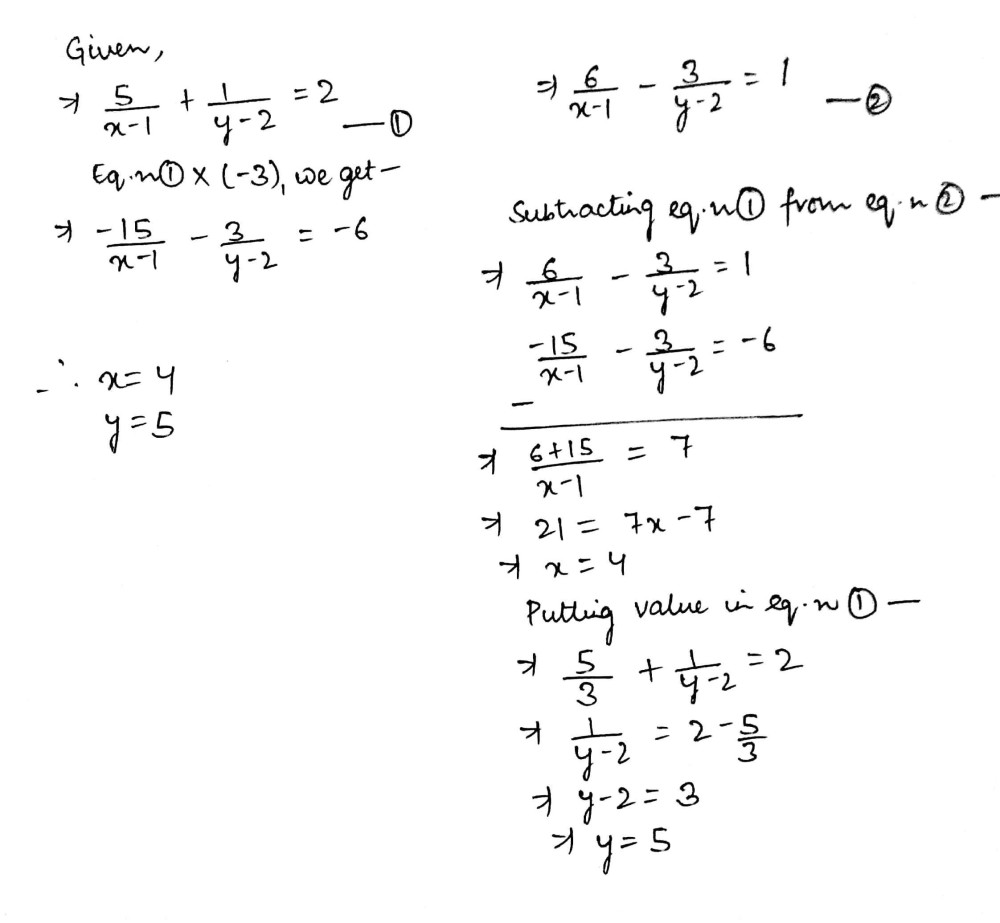 Given,
⇒ 5/(x-1) + 1/(y-2) = 2 —①
Eq.n① × (-3), we get –
⇒ -15/(x-1) - 3/(y-2) = -6
∴ x = 4
y = 5
⇒ 6/(x-1) - 3/(y-2) = 1 —②
Subtracting eq.n① from eq.n② –
⇒ 6/(x-1) - 3/(y-2) = 1
-15/(x-1) - 3/(y-2) = -6
–
⇒ (6+15)/(x-1) = 7
⇒ 21 = 7x - 7
⇒ x = 4
Putting value in eq.n① —
⇒ 5/3 + 1/(y-2) = 2
⇒ 1/(y-2) = 2 - 5/3
⇒ y-2 = 3
⇒ y = 5